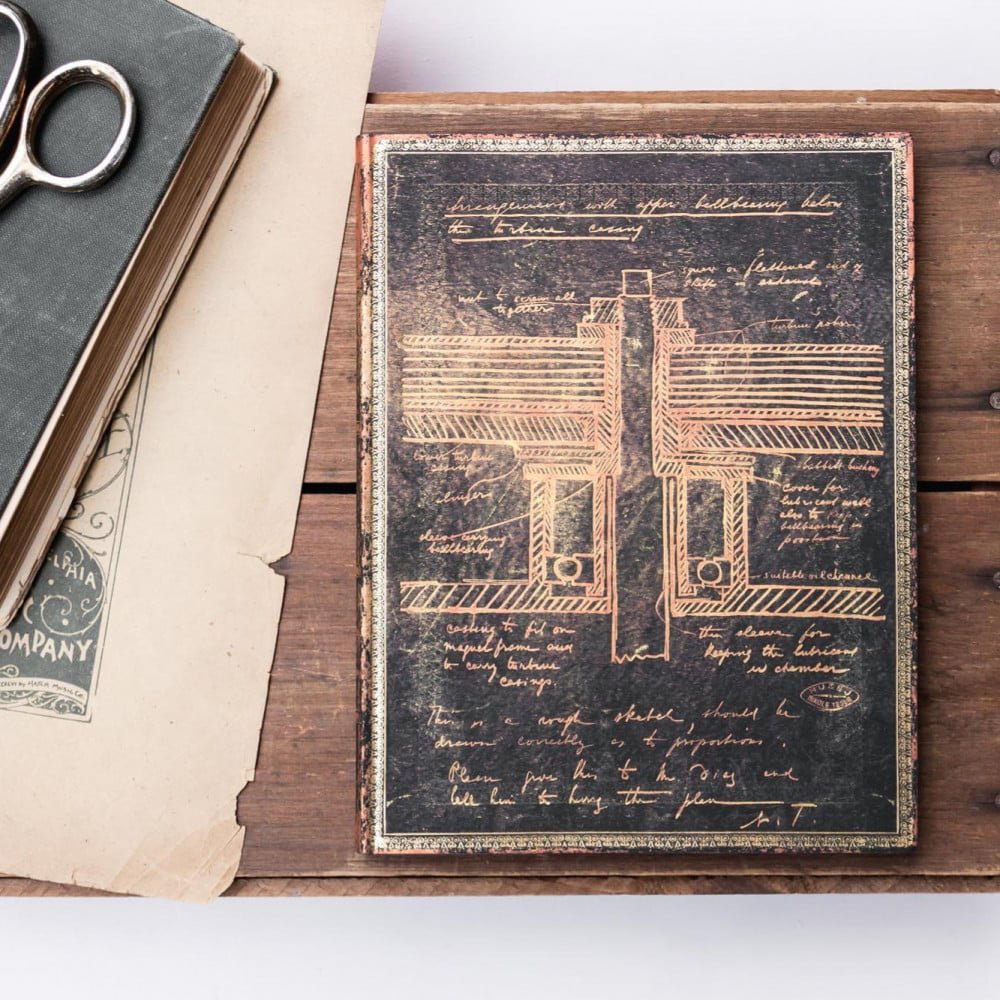 arrangement with upper ballbearing below
the turbine casing
square or flattened end of
shaft
nut to screw all
together
turbine rotor
lower turbine
casing
babbitt bushing
cover for
lubricant well
also to keep
ballbearing in
position
sleeve carrying
ballbearing
suitable oil channel
casting to fit on
magnet frame and
to carry turbine
casings.
thin sleeve for
keeping the lubricant
in chamber
This is a rough sketch, should be
drawn correctly as to proportions.
Please give this to Mr. Diaz and
tell him to bring the plan
N. T.
ELPHIA
OMPANY